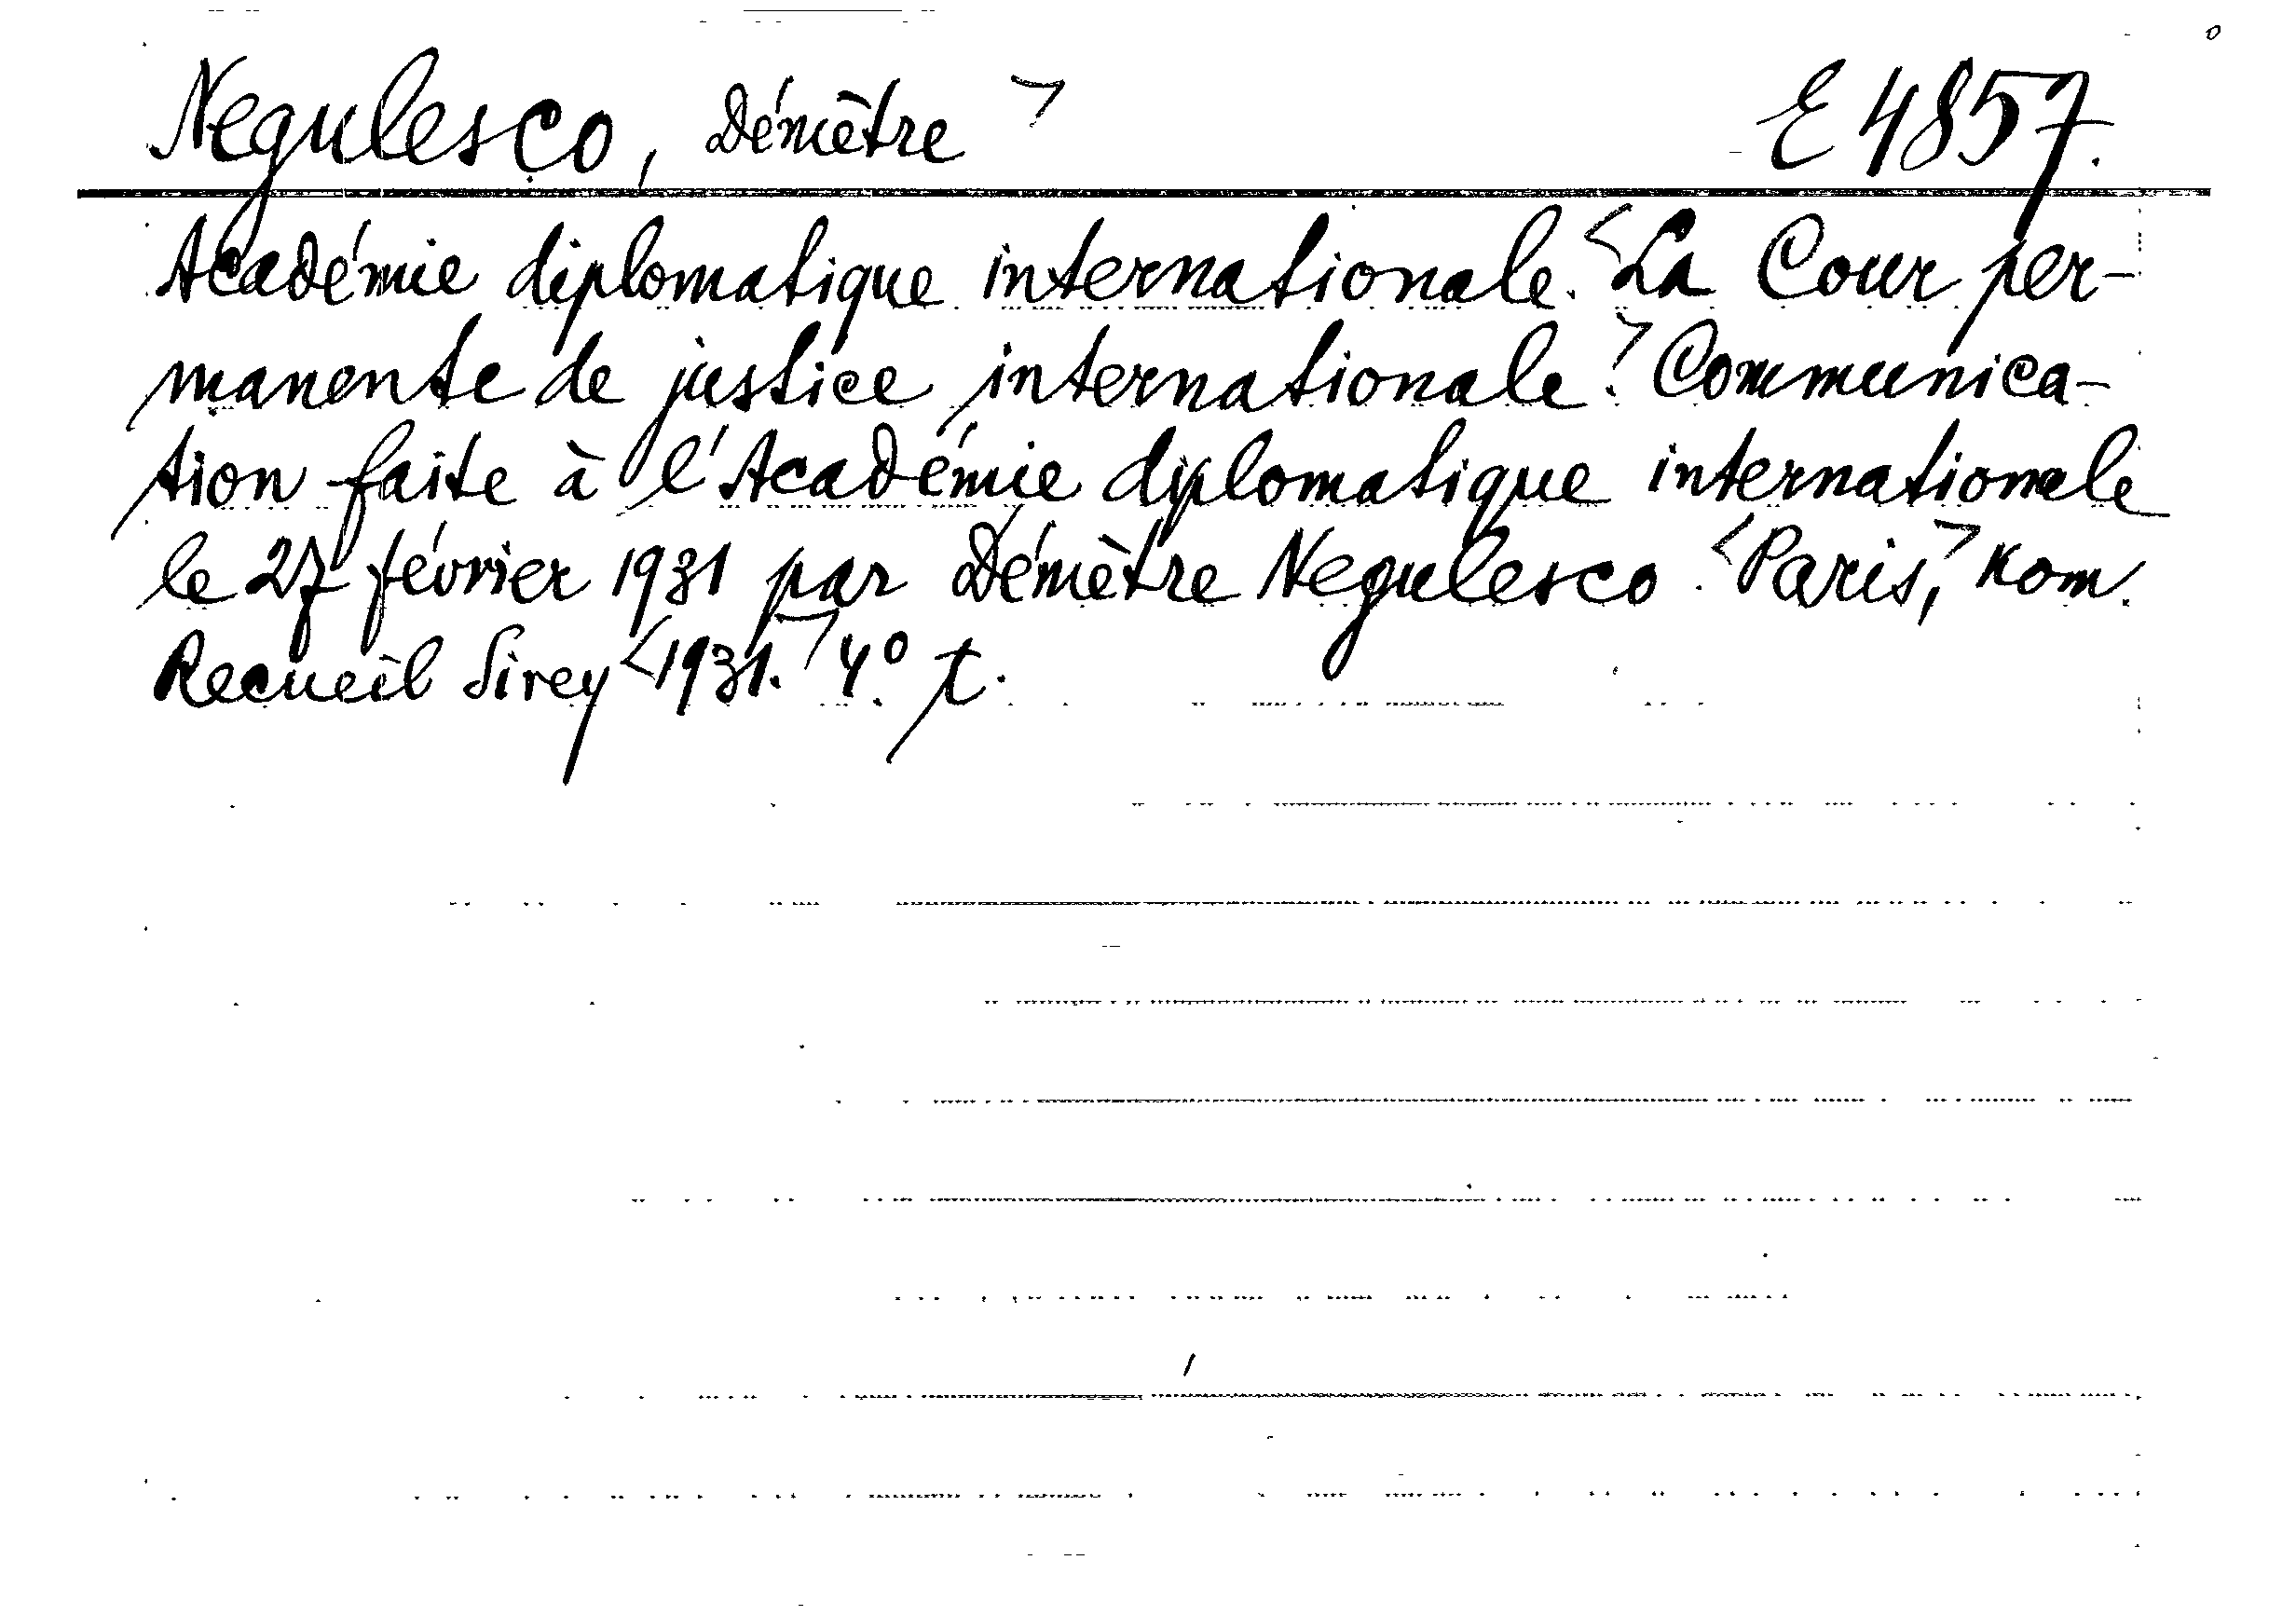 Negulesco, Démètre > E 4857.
Académie diplomatique internationale. <La Cour per-
manente de justice internationale.> Communica-
tion faite à l'Académie diplomatique internationale
le 27 février 1931 par Démètre Negulesco. <Paris,> kom.
Recueil Sirey <1931.> 4° t.